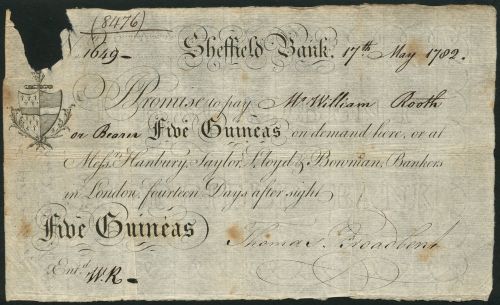 (8476)
N 1649 Sheffield Bank, 17th May 1782.
I Promise to pay Mr William Rooth
or Bearer Five Guineas on demand here, or at
Messrs Hanbury, Taylor, Lloyd & Bowman, Bankers
in London, fourteen Days after sight
Five Guineas
Thomas Broadbent
Entd. W.R